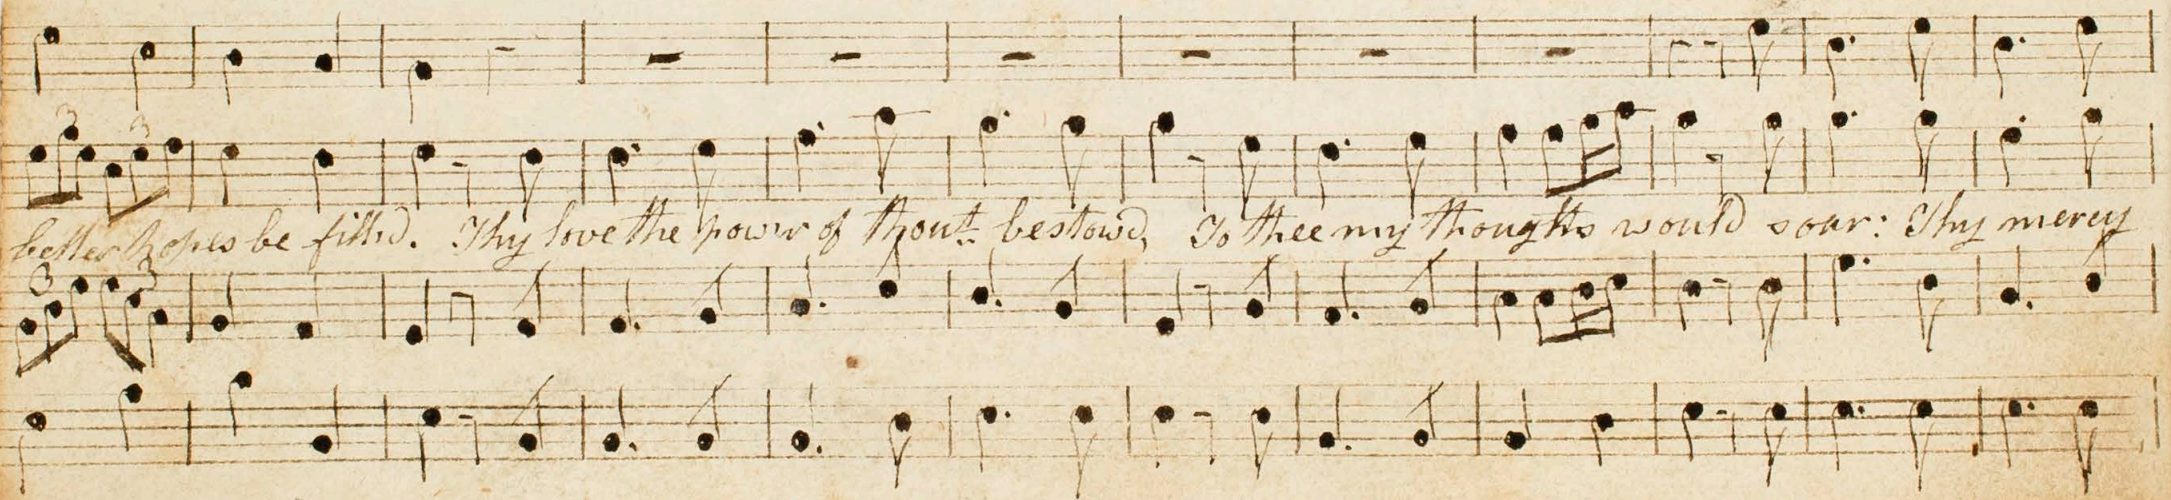 3 3
better hopes be fill'd. Thy love the pow'r of thou't bestow'd, To thee my thoughts would soar: Thy mercy
3 3